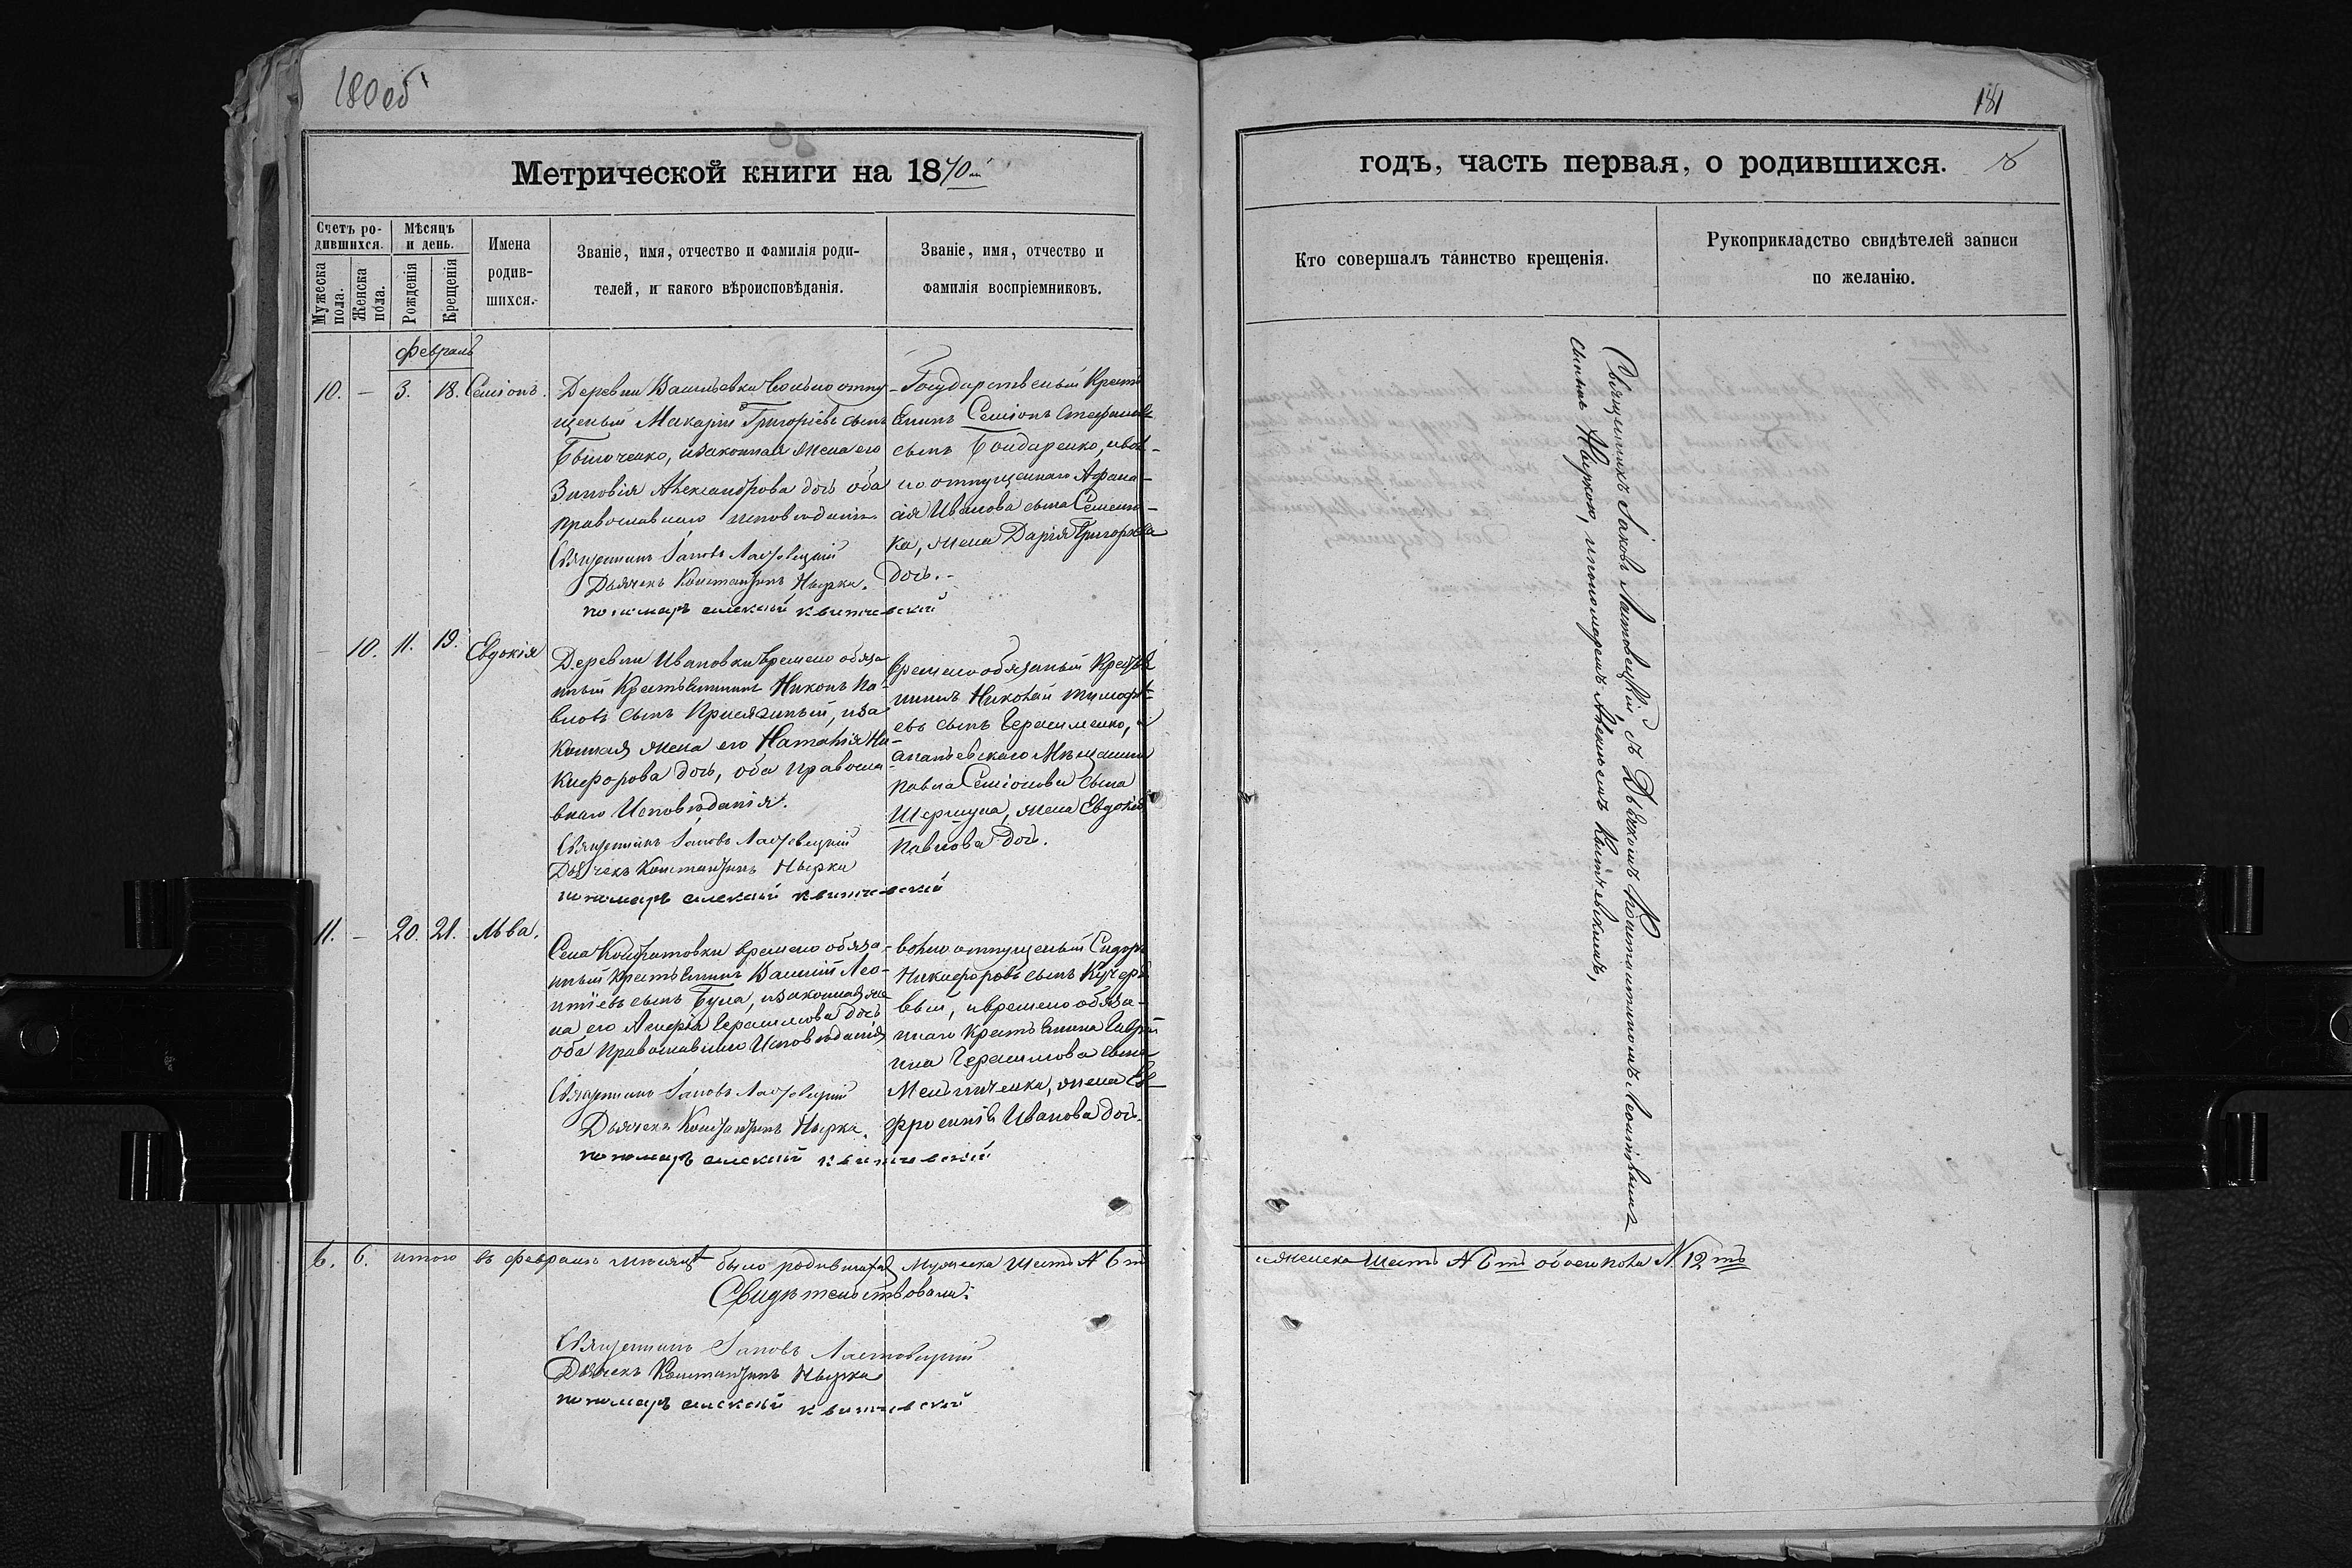 180 об
Метрической книги на 1870
Счетъ ро-
дившихся.
Мѣсяцъ
и день.
Мужеска
пола.
Женска
пола.
Рожденія
Крещенія
Имена
родив-
шихся.
Званіе, имя, отчество и фамилія роди-
телей, и какого вѣроисповѣданія.
Званіе, имя, отчество и
фамилія воспріемниковъ.
Февраль
10. – 3. 18. Семіонъ.
Деревни Васильевки вольно отпу-
щеный Макарій Григоріевъ сынъ
изаконная жена его
Зиновія Александрова дочь оба
православнаго исповѣданія.
Священникъ Іаковъ Лястовецкій
Дьячекъ Константинъ Нырка.
пономарь алексій квитчевскій
Государственый Крест
Семіонъ Стефановъ
сынъ Бондаренко, ивол-
но отпущенаго Афана-
сія Иванова сына Семени-
ка, жена Дарія Григорьева
дочь.
– 10. 11. 19. Евдокія
Деревни Ивановки времено обяза-
нный Крестьянинъ Никонъ Па-
вловъ сынъ Присяжный, иза-
конная жена его Наталія Ни-
кифорова дочь, оба православ
внаго Исповѣданія.
Священникъ Іаковъ Лястовецкій
Дьячекъ Константинъ Нырка
пономарь алексій квитчевскій
времено обязаный Крестья
нинъ Николай Тимофѣ-
евъ сынъ Герасименко, и
ананьевскаго Мѣщанина
Павла Семіонова сына
жена Евдокія
Павлова дочь.
11. – 20. 21. Льва.
Села Кондратовки времено обяза-
нный Крестьянинъ Василій Лео-
нтіевъ сынъ Була, изаконная же
на его Герасимова дочь
оба Православнаго Исповѣданія
Священникъ Іаковъ Лястовецкій
Дьячекъ Константинъ Нырка.
пономарь алексій квитчевскій
волно отпущеный Сидоръ
Никифоровъ сынъ Кучеря
вый, ивремено обяза-
ннаго Крестьянина Гаврі
ила Герасимова сына
Мельниченка, жена Ев-
фросинія Иванова дочь.
6. 6. итого въ Февралѣ мѣсяцѣ было родившихся Мужеска Шесть № 6 ть
Свидѣтельствовали:
Священникъ Іаковъ Лястовецкій
Дьячекъ Константинъ Нырка
пономарь алексій квитчевскій
181
годъ, часть первая, о родившихся.
Кто совершалъ таинство крещенія.
Рукоприкладство свидѣтелей записи
по желанію.
Священникъ Іаковъ Лястовецкій съ Дьячкомъ Константиномъ Леонтьевымъ
сыномъ Ныркою, ипономаремъ Алексѣемъ Квитчевскимъ,
иженска Шесть № 6 ть обоего пола № 12 ть